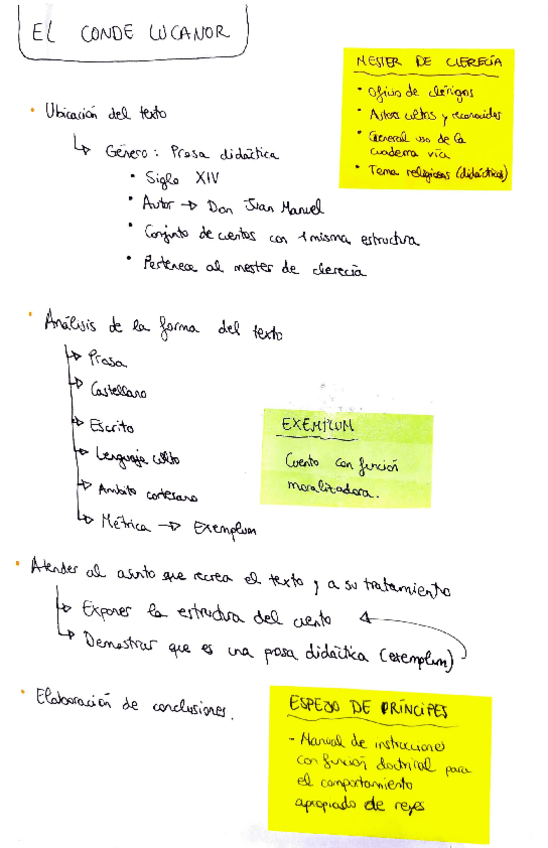 EL CONDE LUCANOR
MESTER DE CLERECÍA
• Oficio de clérigos
• Autores cultos y reconocidos
• General uso de la
cuaderna vía
• Tema religiosos (didácticos)
• Ubicación del texto
↳ Género: Prosa didáctica
• Siglo XIV
• Autor → Don Juan Manuel
• Conjunto de cuentos con 1 misma estructura
• Pertenece al mester de clerecía
• Análisis de la forma del texto
→ Prosa
→ Castellano
→ Escrito
→ Lenguaje culto
→ Ámbito cortesano
→ Métrica → Exemplum
EXEMPLUM
Cuento con función
moralizadora.
• Atender al asunto que recrea el texto y a su tratamiento
→ Exponer la estructura del cuento
→ Demostrar que es una prosa didáctica (exemplum)
• Elaboración de conclusiones.
ESPEJO DE PRÍNCIPES
- Manual de instrucciones
con función doctrinal para
el comportamiento
apropiado de reyes